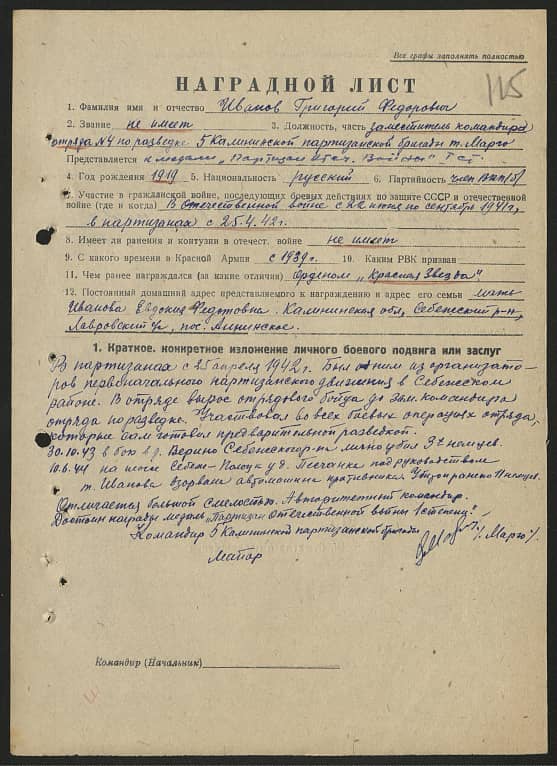 Все графы заполнять полностью
115
НАГРАДНОЙ ЛИСТ
1. Фамилия имя и отчество Иванов Григорий Федорович
2. Звание не имеет 3. Должность, часть заместитель командира
отряда №4 по разведке 5 Калининской партизанской бригады т. Марго
Представляется к медали „Партизан Отеч. Войны" I ст.
4. Год рождения 1919 5. Национальность русский 6. Партийность член ВКП/б/
7. Участие в гражданской войне, последующих боевых действиях по защите СССР и отечественной
войне (где и когда) В отечественной войне с 22 июня по сентябрь 1941г,
в партизанах с 25.4.42г.
8. Имеет ли ранения и контузии в отечест. войне не имеет
9. С какого времени в Красной Армии с 1939г. 10. Каким РВК призван
11. Чем ранее награждался (за какие отличия) Орденом „Красная Звезда"
12. Постоянный домашний адрес представляемого к награждению и адрес его семьи мать
Иванова Евдокия Федотовна. Калининская обл, Себежский р-н,
Лавровский с/с, пос. Аннинское.
1. Краткое, конкретное изложение личного боевого подвига или заслуг
В партизанах с 25 апреля 1942г. Был одним из организато-
ров первоначального партизанского движения в Себежском
районе. В отряде вырос от рядового бойца до зам. командира
отряда по разведке. Участвовал во всех боевых операциях отряда,
которые сам готовил предварительной разведкой.
30.10.43 в бою в д. Верино Себежского р-на лично убил 3х немцев.
10.6.44 на шоссе Полоцк у д. Песчанка под руководством
т. Иванова взорвана автомашина противника. Убито и ранено 11 немцев.
Отличается большой смелостью. Авторитетный командир.
Достоин награды медаль „Партизан Отечественной войны 1 степени".
Командир 5 Калининской партизанской бригады
Майор /Марго/.
Командир (Начальник)